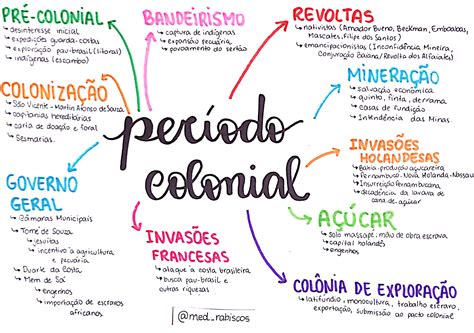 PRÉ-COLONIAL
↳ desinteresse inicial
↳ expedição guarda-costas
↳ exploração pau-brasil (litoral)
↳ indígenas (escambo)
BANDEIRISMO
↳ captura de indígenas
↳ expansão pecuária
↳ povoamento do sertão
REVOLTAS
↳ nativistas (Amador Bueno, Beckman, Emboabas,
Mascates, Filipe dos Santos)
↳ emancipacionistas (Inconfidência Mineira,
Conjuração Baiana / Revolta dos Alfaiates)
COLONIZAÇÃO
↳ São Vicente - Martim Afonso de Souza
↳ capitanias hereditárias
↳ carta de doação e foral
↳ Sesmarias.
MINERAÇÃO
↳ salvação econômica
↳ quinto, finta, derrama
↳ casas de fundição
↳ Intendência das Minas
período
colonial
INVASÕES
HOLANDESAS
↳ Bahia - produção açucareira
↳ Pernambuco - Nova Holanda - Nassau
↳ Insurreição Pernambucana
↳ decadência da lavoura de
cana de açúcar
GOVERNO
GERAL
↳ Câmaras Municipais
↳ Tomé de Souza
↳ jesuítas
↳ incentivo a agricultura
e pecuária
↳ Duarte da Costa
↳ Mem de Sá
↳ engenhos
↳ importação de escravos
africanos
INVASÕES
FRANCESAS
↳ ataque à costa brasileira
↳ busca pau-brasil e
outras riquezas
AÇÚCAR
↳ solo massapé; mão de obra escrava
↳ capital holandês
↳ engenho
COLÔNIA DE EXPLORAÇÃO
↳ latifúndio, monocultura, trabalho escravo,
exportação, submissão ao pacto colonial
@med_rabiscos